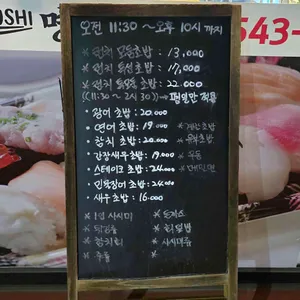 오전 11:30 ~ 오후 10시 까지
OSHI
543-
* 런치 모듬초밥 : 13,000
* 런치 특선초밥 : 17,000
* 런치 초밥 : 22.000
((11:30 ~ 2시30)) → 평일만 적용
· 장어 초밥 : 20.000
· 연어 초밥 : 19.000
· 참치 초밥 : 20.000
· 간장새우초밥 : 19.000
· 스테이크 초밥 : 24.000
· 민물장어 초밥 : 24.000
· 새우 초밥 : 16.000
* 계란초밥
* 유부초밥
* 우동
* 1인 사시미
* 참치회
* 우동
* 돈까스
* 회덮밥
* 사시미